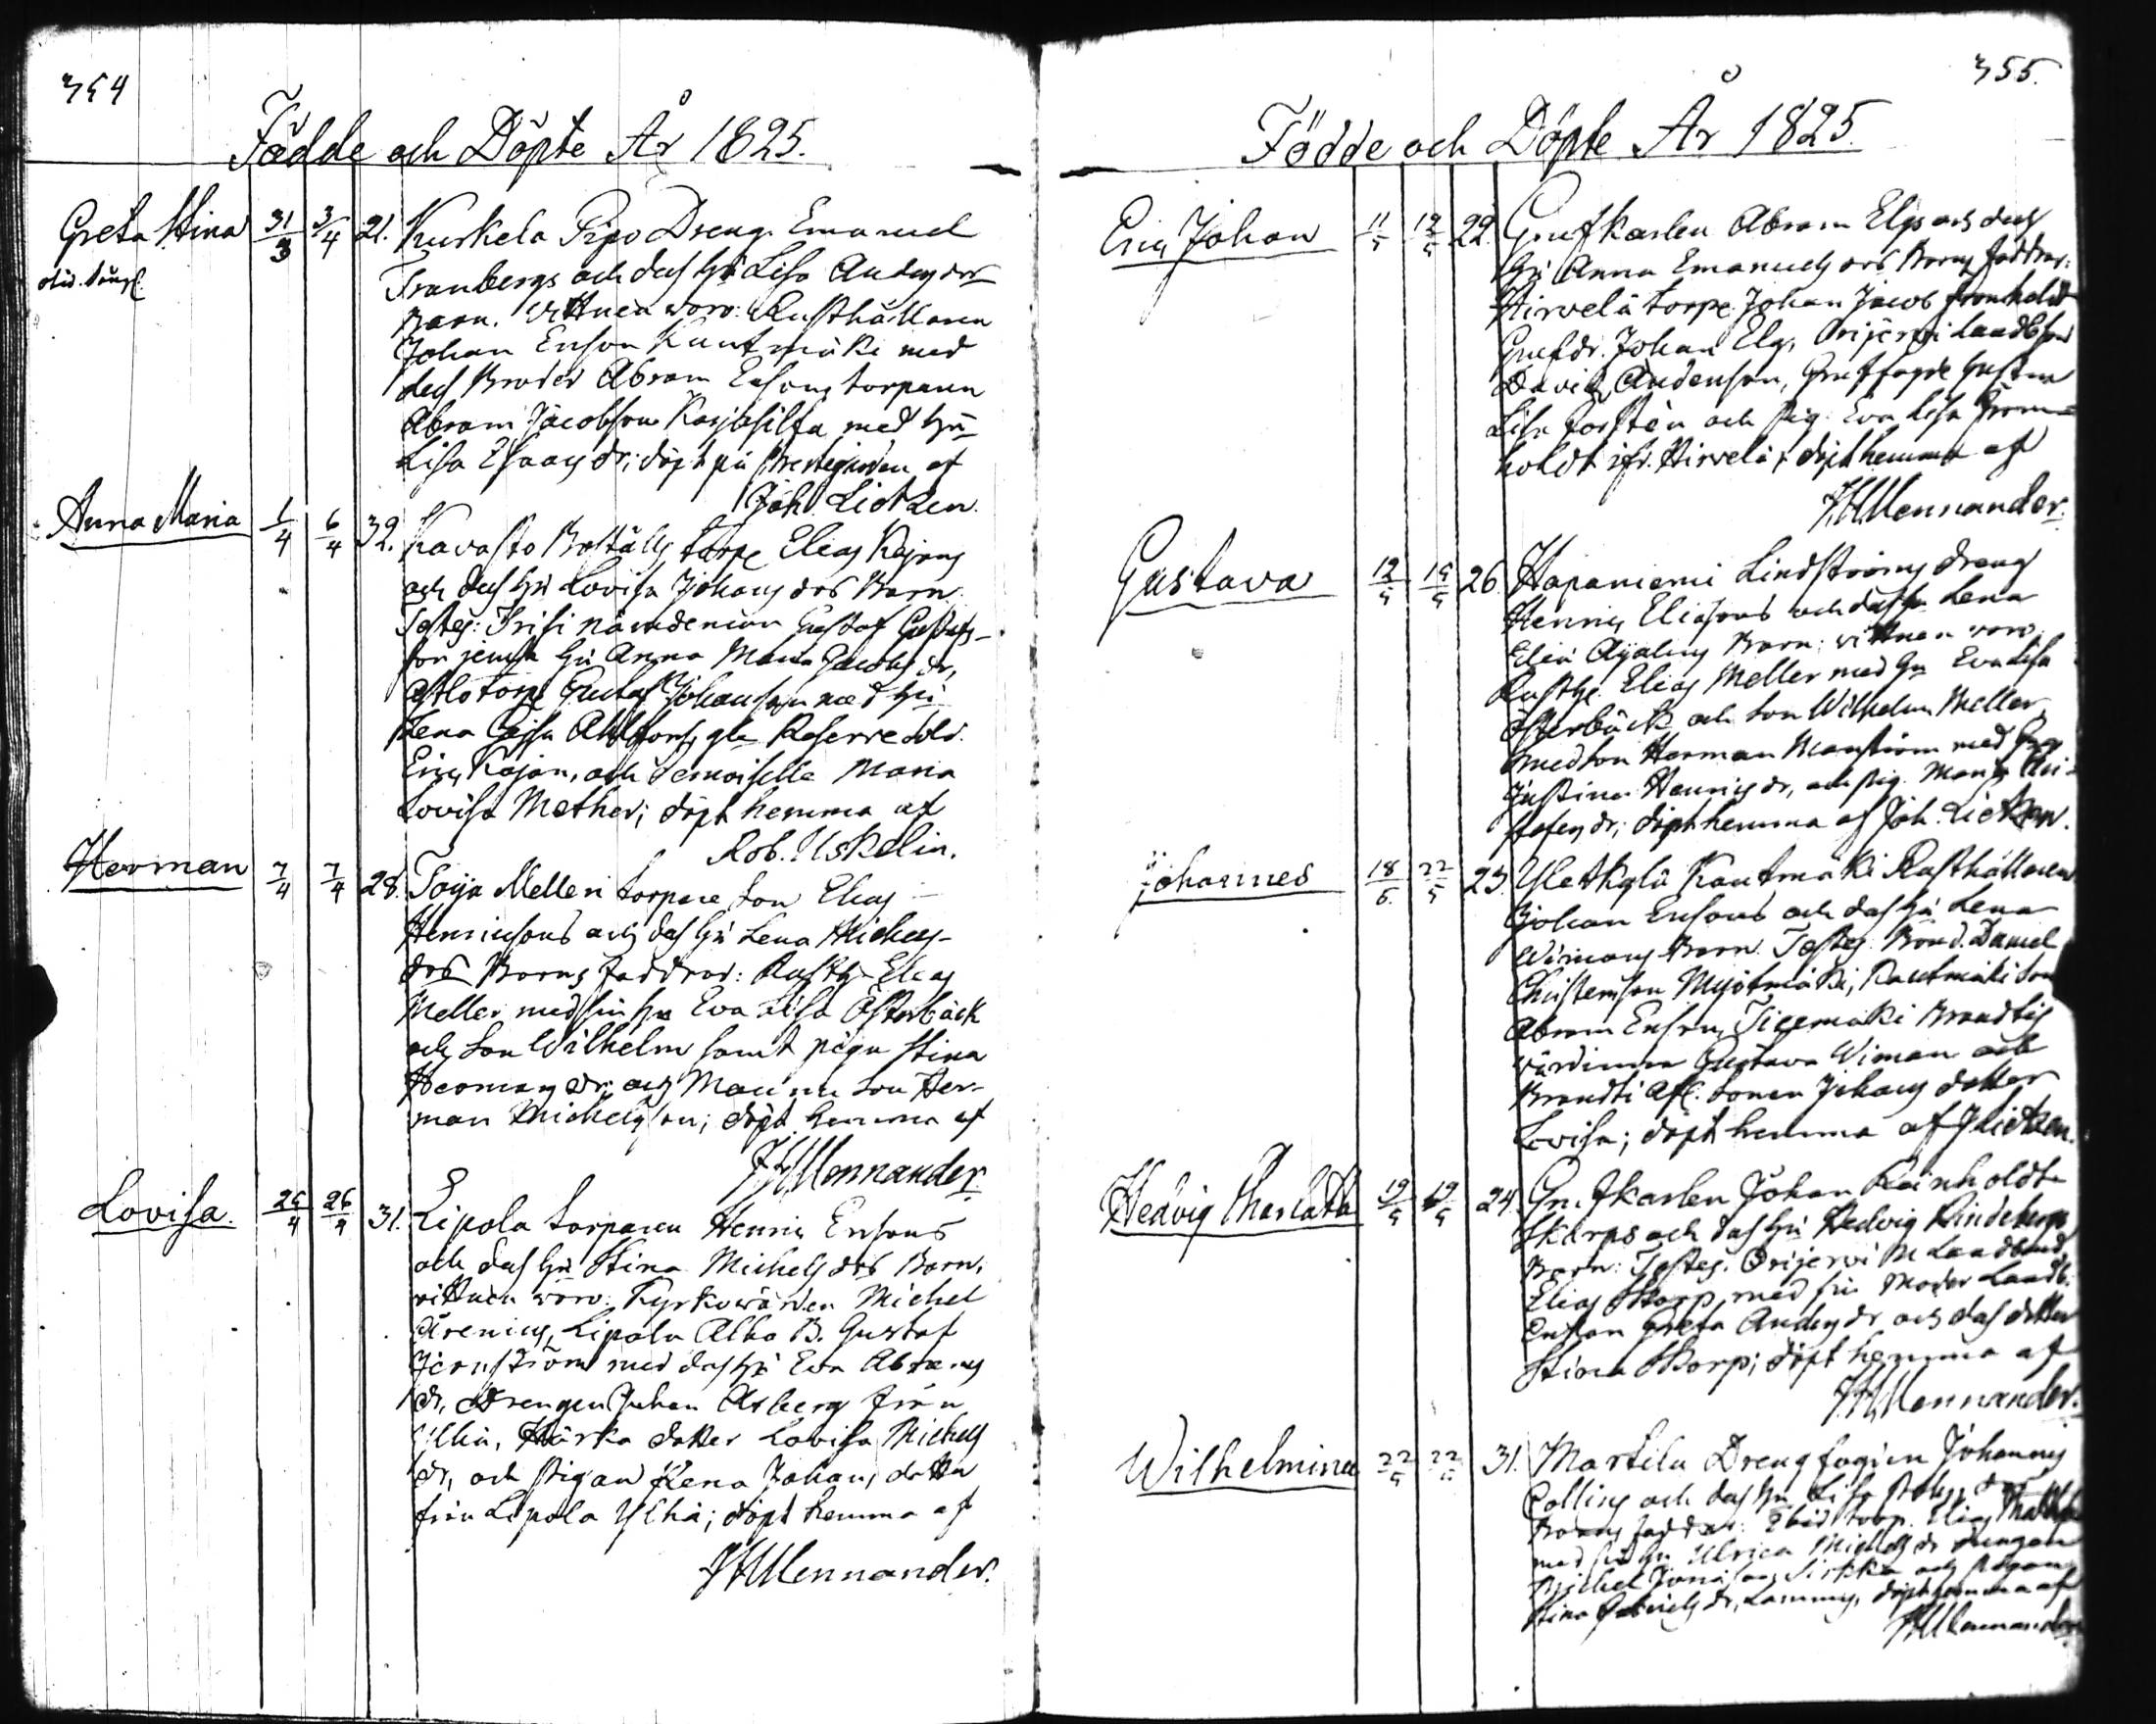 354
Födde och Döpte År 1825.
Greta Stina 31/3 3/4 21. Kurkela Pipo Dreng. Emanuel
Tranbergs och des hu Lisa Anders dors
Barn. Vittnen woro: Rusthållaren
Johan Ersson Kautmäki med
des Broder Abram Ersson, torparen
Abram Jacobsson Karjasilta med hu
Lisa Esaas dr; döpt på Prestegården af
Joh. Lietzen.
Anna Maria 1/4 6/4 32. Kavasto Boställs torp. Elias Kajans
och des hu Lovisa Johans dors Barn.
Testes: nämndeman Gustaf Gustafs-
son jemte hu Anna Maria Jacobs dr,
torp. Gustaf Johansson med hu
Lena Cajsa gla Reserve sold.
Eric Kajan, och Demoiselle Maria
Lovisa Mether; döpt hemma af
Rob. Uskelin.
Herman 7/4 7/4 28. Toija Melleri torpare son Elias
Henricsons och des hu Lena Michels-
dors Barns Faddrar: Rusth. Elias
Meller med sin hu Eva Lisa Österback
och son Wilhelm samt pigan Stina
Hermans dr; och son Her-
man Michelsson; döpt hemma af
J H Mennander.
Lovisa. 26/4 31. Lipola torparen Henric Ersons
och des hu Stina Michels dors Barn.
vittnen woro: Kyrkowärden Michel
Arenius, Lipola B. Gustaf
Jernström med des hu Eva Abrams
dr, Drengen Johan Arberg från
Ylhä, Härkä dotter Lovisa Michels
dr, och Pigan Lena Johans dotter
från Lipola Ylhä; döpt hemma af
J H Mennander.
355.
Födde och Döpte År 1825.
Eric Johan 11/5 12/5 22. Grufkarlen Abram Elgs och des
hu Anna Emanuels dors Barns Faddrar:
Hirvelä torp. Johan Jacob
Grufdr. Johan Elg, Orijerfvi Landbond
David Anderson, Gustava
Lisa Forstén och Pig. Eva Lisa Grön-
holdt ifr. Hirvelä, döpt hemma af
J H Mennander.
Gustava 12/5 15/5 26. Hapaniemi Lindströms dreng
Henric Eliasons och des hu Lena
Barn: vittnen woro.
Rusth. Elias Meller med hu Eva Lisa
Österback och son Wilhelm Meller,
Herman med
Justina Henrics dr, och pig. Maria
dr; döpt hemma af Joh. Lietzen.
Johannes 18/5 22/5 23. Yletkylä Kautmäki Rusthållaren
Johan Ersons och des hu Lena
Wimans Barn. Testes: Bond. Daniel
Christersson Myötmäki, Kautmäki son
Abram Ersson, Brandtis
värdinna Gustava Wiman och
Brandti afl. sonen Johans dotter
Lovisa; döpt hemma af J Lietzen.
Hedvig Charlotta 19/5 19/5 24. Grufkarlen Johan Reinholdt
Skarps och des hu Hedvig Lindebergs
Barn: Testes. Orijerwi Landbond
Elias Skarp, med sin Moder Landb.
enkan Greta Anders dr och des dotter
Stina Skarp; döpt hemma af
J H Mennander.
Wilhelmina 22/5 31. Martila Drengfogden Johannis
Collins och des hu Lisa
Barns Faddrar: Ibid torp. Elias
med sin hu Ulrica Michels dr drengen
Michel och Pigan
Stina dr, döpt hemma af
J H Mennander